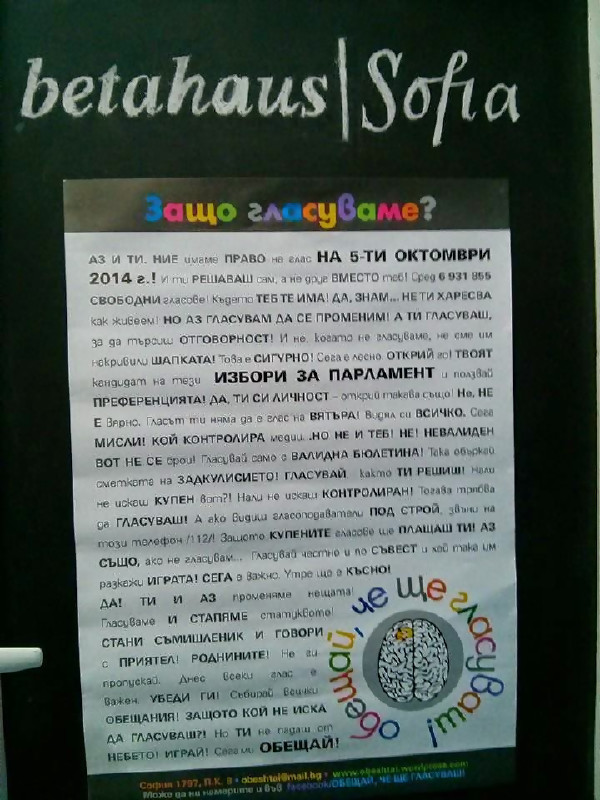 betahaus|Sofia
Защо гласуваме?
АЗ И ТИ. НИЕ имаме ПРАВО на глас НА 5-ТИ ОКТОМВРИ
2014 г.! И ти РЕШАВАШ сам, а не друг ВМЕСТО теб! Сред 6 931 855
СВОБОДНИ гласове! Където ТЕБ ТЕ ИМА! ДА, ЗНАМ... НЕ ТИ ХАРЕСВА
как живеем! НО АЗ ГЛАСУВАМ ДА СЕ ПРОМЕНИМ! А ТИ ГЛАСУВАШ,
за да търсиш ОТГОВОРНОСТ! И не, когато не гласуваме, не сме им
накривили ШАПКАТА! Това е СИГУРНО! Сега е лесно ОТКРИЙ го! ТВОЯТ
кандидат на тези ИЗБОРИ ЗА ПАРЛАМЕНТ и ползвай
ПРЕФЕРЕНЦИЯТА! ДА, ТИ СИ ЛИЧНОСТ – открий такава също! Не, НЕ
Е вярно. Гласът ти няма да е глас на ВЯТЪРА! Видял си ВСИЧКО. Сега
МИСЛИ! КОЙ КОНТРОЛИРА медии...НО НЕ И ТЕБ! НЕ! НЕВАЛИДЕН
ВОТ НЕ СЕ брои! Гласувай само с ВАЛИДНА БЮЛЕТИНА! Така объркай
сметката на ЗАДКУЛИСИЕТО! ГЛАСУВАЙ както ТИ РЕШИШ! Нали
не искаш КУПЕН вот?! Нали не искаш КОНТРОЛИРАН! Тогава трябва
да ГЛАСУВАШ! А ако видиш гласоподаватели ПОД СТРОЙ, звънни на
този телефон /112/! Защото КУПЕНИТЕ гласове ще ПЛАЩАШ ТИ! АЗ
СЪЩО, ако не гласувам... Гласувай честно и по СЪВЕСТ и пак така им
разкажи ИГРАТА! СЕГА е важно. Утре ще е КЪСНО!
ДА! ТИ И АЗ променяме нещата!
Гласуваме И СТАПЯМЕ статуквото!
СТАНИ СЪМИШЛЕНИК И ГОВОРИ
с ПРИЯТЕЛ! РОДНИНИТЕ! Не ги
пропускай. Днес всеки глас е
важен. УБЕДИ ГИ! Събирай всички
ОБЕЩАНИЯ! ЗАЩОТО КОЙ НЕ ИСКА
ДА ГЛАСУВАШ?! Но ТИ не падаш от
НЕБЕТО! ИГРАЙ! Сега ми ОБЕЩАЙ!
обещай, че ще гласуваш!
София 1797, П.К. 8 • obeshtai@mail.bg • www.obeshtai.wordpress.com
Може да ни намерите и във facebook/ОБЕЩАЙ, ЧЕ ЩЕ ГЛАСУВАШ!